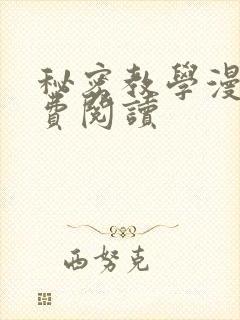 秘密教學漫
費閱讀
西努克